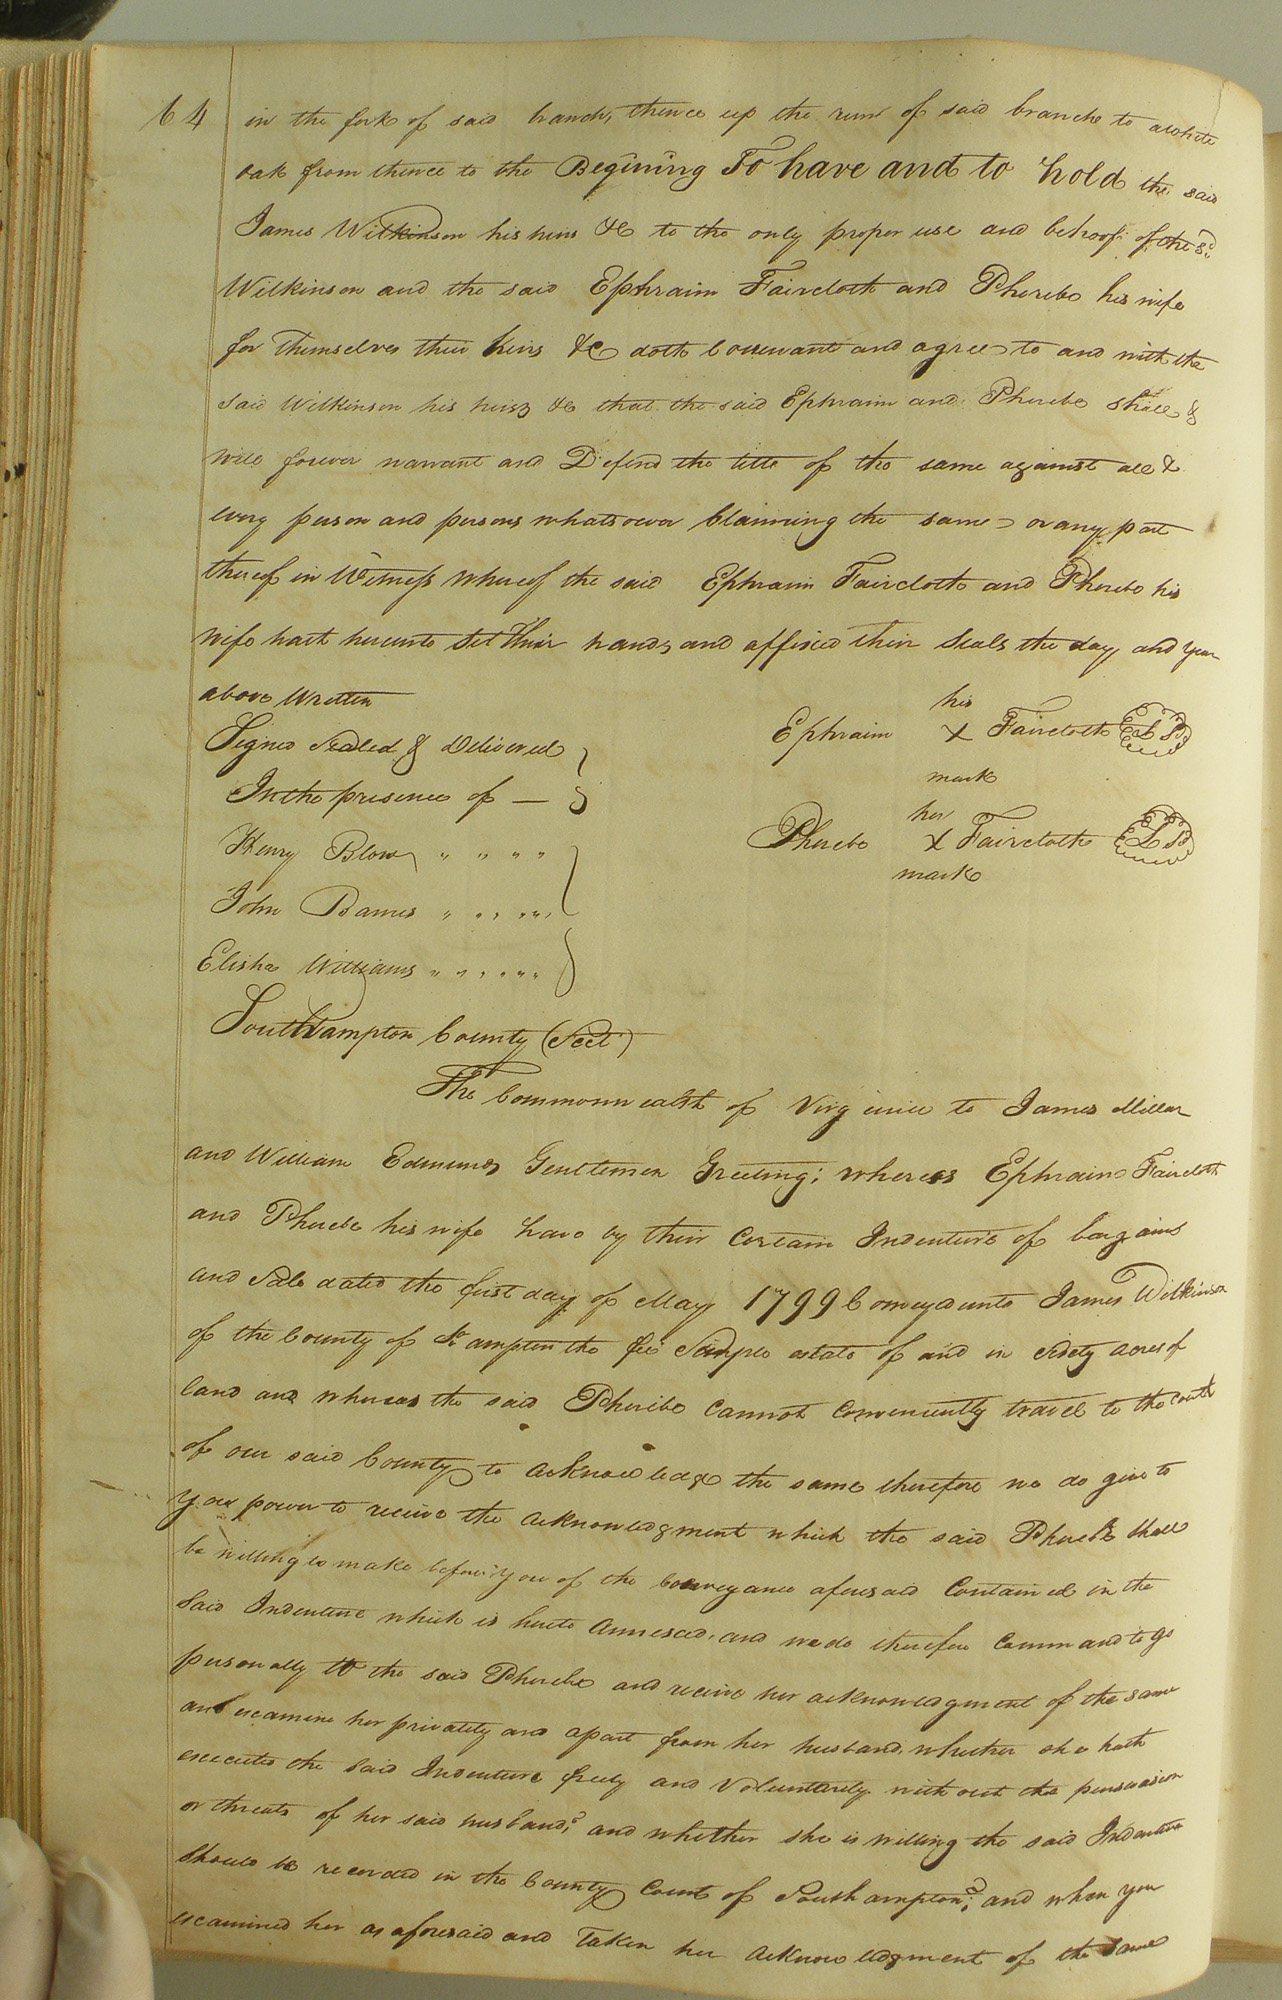 64
in the fork of said branch, thence up the run of said branch to a white
oak from thence to the Begining To have and to hold the said
James Wilkinson his heirs &c to the only proper use and behoof of the sd.
Wilkinson and the said Ephraim Faircloth and Pherebe his wife
for themselves their heirs &c doth Covenant and agree to and with the
said Wilkinson his heirs &c that the said Ephraim and Pherebe shall &
will forever warrant and Defend the title of the same against all &
every person and persons whatsoever Claiming the same or any part
thereof in Witness whereof the said Ephraim Faircloth and Pherebe his
wife hath hereunto Set Their hands and affixed their Seals the day and year
above Written
Signed Sealed & Delivered
In the presence of —
Henry Blow " " " "
John Barnes " " " "
Elisha Williams " " " " "
his
Ephraim X Faircloth LS
mark
her
Pherebe X Faircloth LS
mark
Southampton County (Sct.)
The Commonwealth of Virginia to James Millar
and William Edmunds Gentlemen Greeting; whereas Ephraim Faircloth
and Pherebe his wife have by their Certain Indenture of bargain
and Sale dated the first day of May 1799 Conveyed unto James Wilkinson
of the County of St.ampton the fee Simple estate of and in Sixty acres of
land and whereas the said Pherebe cannot conveniently travel to the court
of our said County to acknowledge the same therefore we do give to
you power to receive the acknowledgment which the said Pherebe shall
be willing to make before you of the Conveyance aforesaid Contained in the
Said Indenture which is hereto annexed, and we do therefore command to go
personally to the said Pherebe and receive her acknowledgment of the same
and examine her privately and apart from her husband, whether she hath
executed the said Indenture freely and Voluntarily with out the persuasion
or threats of her said husband,? and whether she is willing the said Indenture
should be recorded in the County Court of Southampton;? and when you
examined her as aforesaid and Taken her acknowledgment of the same